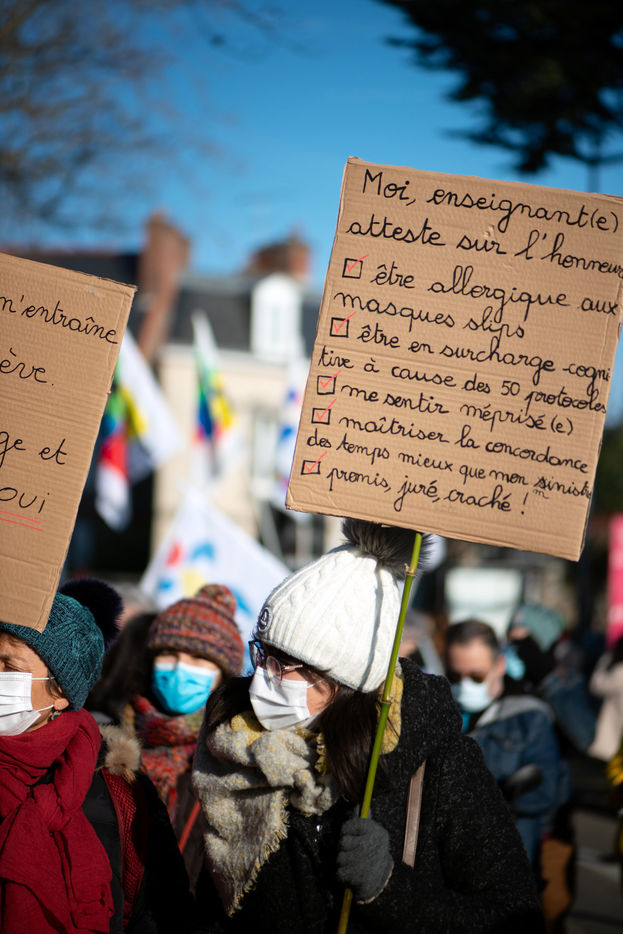 m'entraîne
ève.
ge et
oui
Moi, enseignant(e)
atteste sur l'honneur
être allergique aux
masques slips
être en surcharge cogni
tive à cause des 50 protocoles
me sentir méprisé(e)
maîtriser la concordance
des temps mieux que mon sinistre
promis, juré, craché ! m